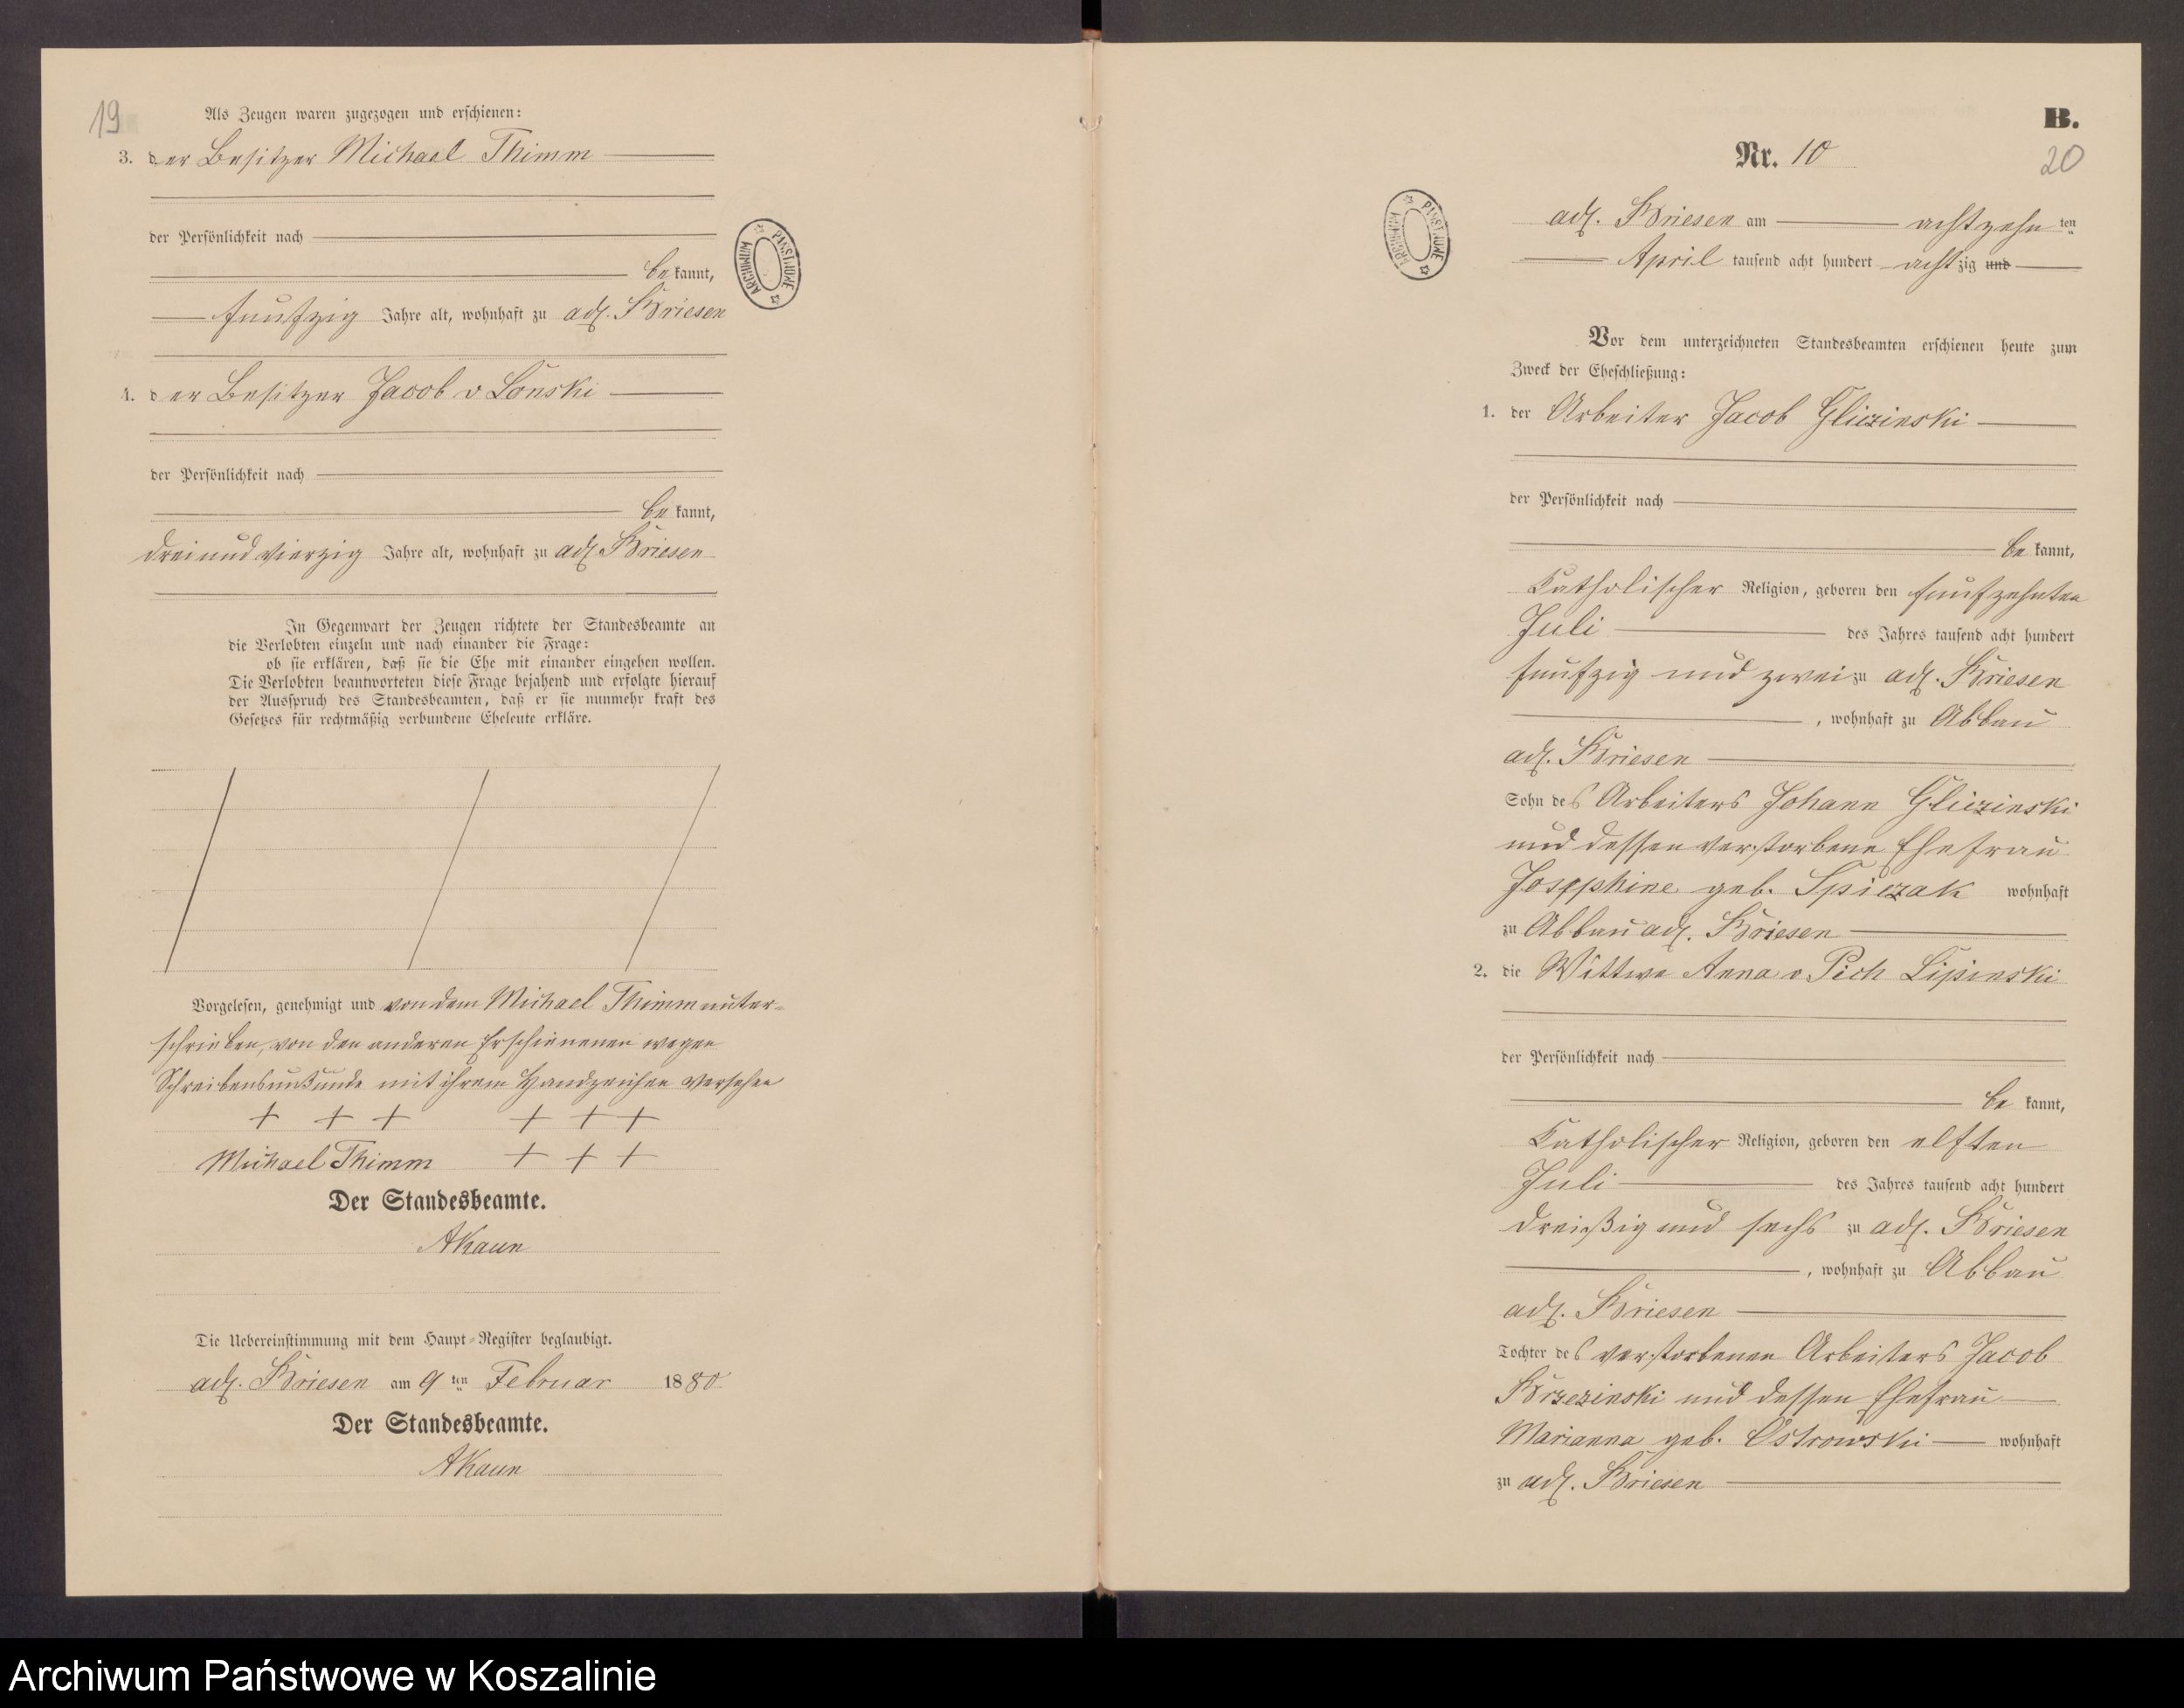 19
Als Zeugen waren zugezogen und erschienen:
3. der Besitzer Michael Thimm
der Persönlichkeit nach
be kannt,
funfzig Jahre alt, wohnhaft zu adl. Briesen
4. der Besitzer Jacob v Lonski
der Persönlichkeit nach
be kannt,
drei und vierzig Jahre alt, wohnhaft zu adl. Briesen
In Gegenwart der Zeugen richtete der Standesbeamte an
die Verlobten einzeln und nach einander die Frage:
ob sie erklären, daß sie die Ehe mit einander eingehen wollen.
Die Verlobten beantworteten diese Frage bejahend und erfolgte hierauf
der Ausspruch des Standesbeamten, daß er sie nunmehr kraft des
Gesetzes für rechtmäßig verbundene Eheleute erkläre.
Vorgelesen, genehmigt und von dem Michael Thimm unter-
schrieben, von den anderen Erschienenen wegen
Schreibensunkunde mit ihrem Handzeichen versehen
+ + + + + +
Michael Thimm + + +
Der Standesbeamte.
AKaun
Die Uebereinstimmung mit dem Haupt-Register beglaubigt.
adl. Briesen am 9 ten Februar 1880
Der Standesbeamte.
AKaun
ARCHIWUM PAŃSTWOWE
B.
Nr. 10
20
ARCHIWUM PAŃSTWOWE
adl. Briesen am achtzehn ten
April tausend acht hundert achtzig und
Vor dem unterzeichneten Standesbeamten erschienen heute zum
Zweck der Eheschließung:
1. der Arbeiter Jacob Gliszinski
der Persönlichkeit nach
be kannt,
Katholischer Religion, geboren den funfzehnten
Juli des Jahres tausend acht hundert
funfzig und zwei zu adl. Briesen
, wohnhaft zu Abbau
adl. Briesen
Sohn des Arbeiters Johann Gliszinski
und dessen verstorbene Ehefrau
Josephine geb. Spiczak wohnhaft
zu Abbau adl. Briesen
2. die Wittwe Anna v Pich Lipinski
der Persönlichkeit nach
be kannt,
Katholischer Religion, geboren den elften
Juli des Jahres tausend acht hundert
dreißig und sechs zu adl. Briesen
, wohnhaft zu Abbau
adl. Briesen
Tochter des verstorbenen Arbeiters Jacob
Brzezinski und dessen Ehefrau
Marianna geb. Ostrowski wohnhaft
zu adl. Briesen
Archiwum Państwowe w Koszalinie